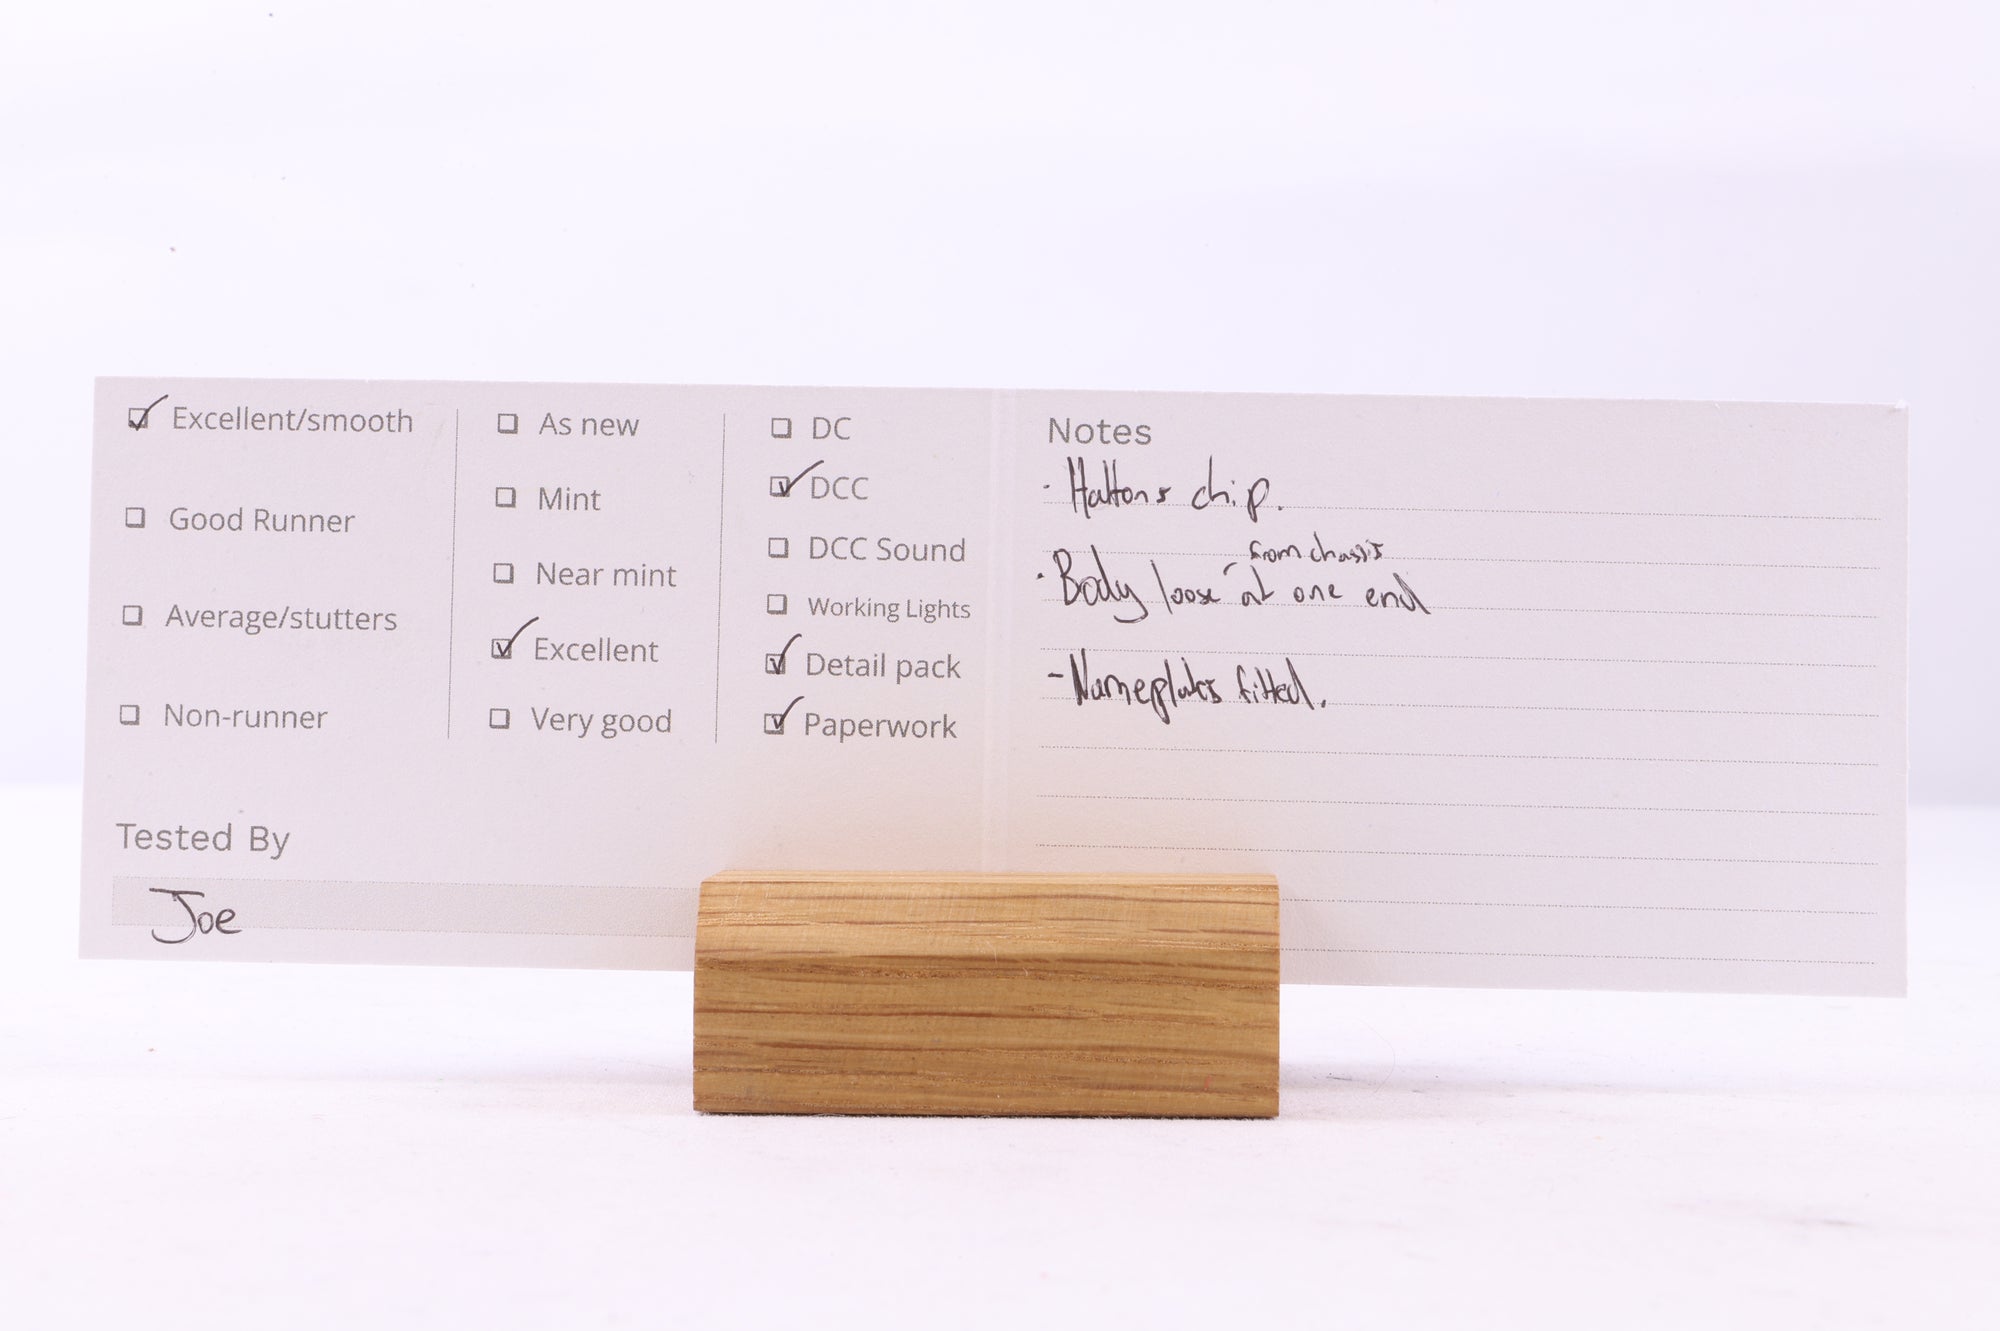 Excellent/smooth
Good Runner
Average/stutters
Non-runner
As new
Mint
Near mint
Excellent
Very good
DC
DCC
DCC Sound
Working Lights
Detail pack
Paperwork
Tested By
Joe
Notes
· Hattons chip.
from chassis
· Body loose at one end
- Nameplates fitted.